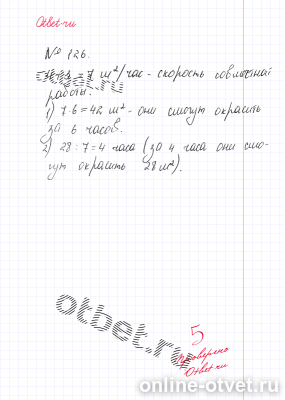 Otbet-ru
№ 126.
= 7 м²/час - скорость совместной
работы.
1) 7·6=42 м² - они смогут окрасить
за 6 часов.
2) 28:7=4 часа (за 4 часа они смо-
гут окрасить 28 м²).
otbet.ru
5
Проверено
Otbet-ru
online-otvet.ru